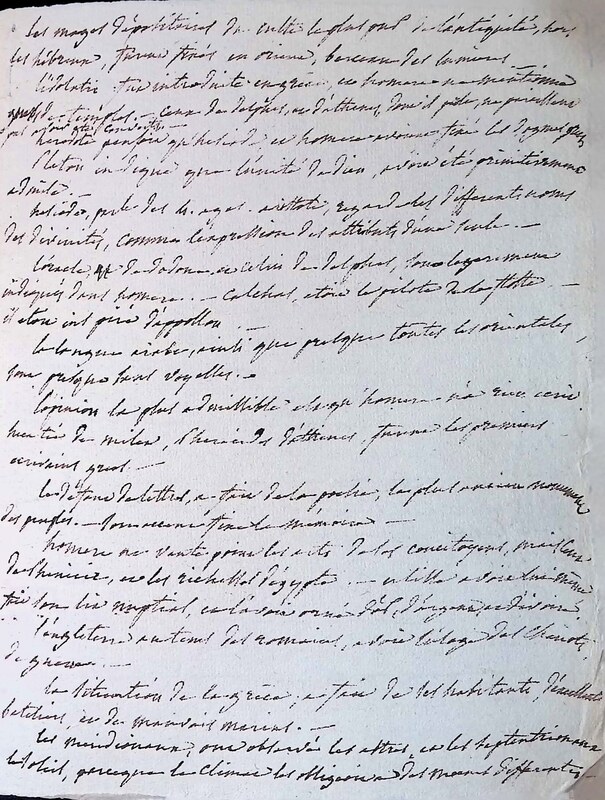 Les mages dépositaires du culte le plus pur de l'antiquité, hors
les hébreux, furent fixés en orient, berceau des lumieres.
L'idolatrie fut introduite en grèce, et homere ne mentionne
de temples. — Ceux de delphes, et d'athenes, dont il parle, ne
pas
herodote pense qu'hesiode, et homere avoient fixé les dogmes
Platon indique que l'unité de dieu, avoit été primitivement
admise. —
hesiode, parle des 4 ages. aristote, regarde les differents noms
des divinités, comme l'expression des attributs d'une seule. —
L'oracle, de dodone, et celui de delphes, sont legerement
indiqués dans homere. — Calchas, etoit le pilote de la flotte —
il etoit inspiré d'appollon. —
la langue arabe, ainsi que presque toutes les orientales,
sont presque sans voyelles. —
L'opinion la plus admissible est qu'homere n'a rien ecrit
de milet, d'athenes, furent les premiers
ecrivains grecs. —
Le défaut de lettres, a fait de la poësie, le plus ancien monument
des peuples. — la mémoire —
homere ne vante point les arts de ses concitoyens, mais ceux
de Phenicie, et les richesses d'égypte. — avoit lui même
fait son lit nuptial, et l'avoit orné d'or, d'argent, et d'ivoire.
L'angleterre au tems des romains, avoit l'usage des Chariots,
de guerre. —
La Situation de la grèce, a fait de ses habitants, d'excellents
bateliers, et de mauvais marins. —
Les meridionaux, ont observé les astres, et les septentrionaux
le Soleil, parceque le Climat les obligeoit a des moeurs differentes —